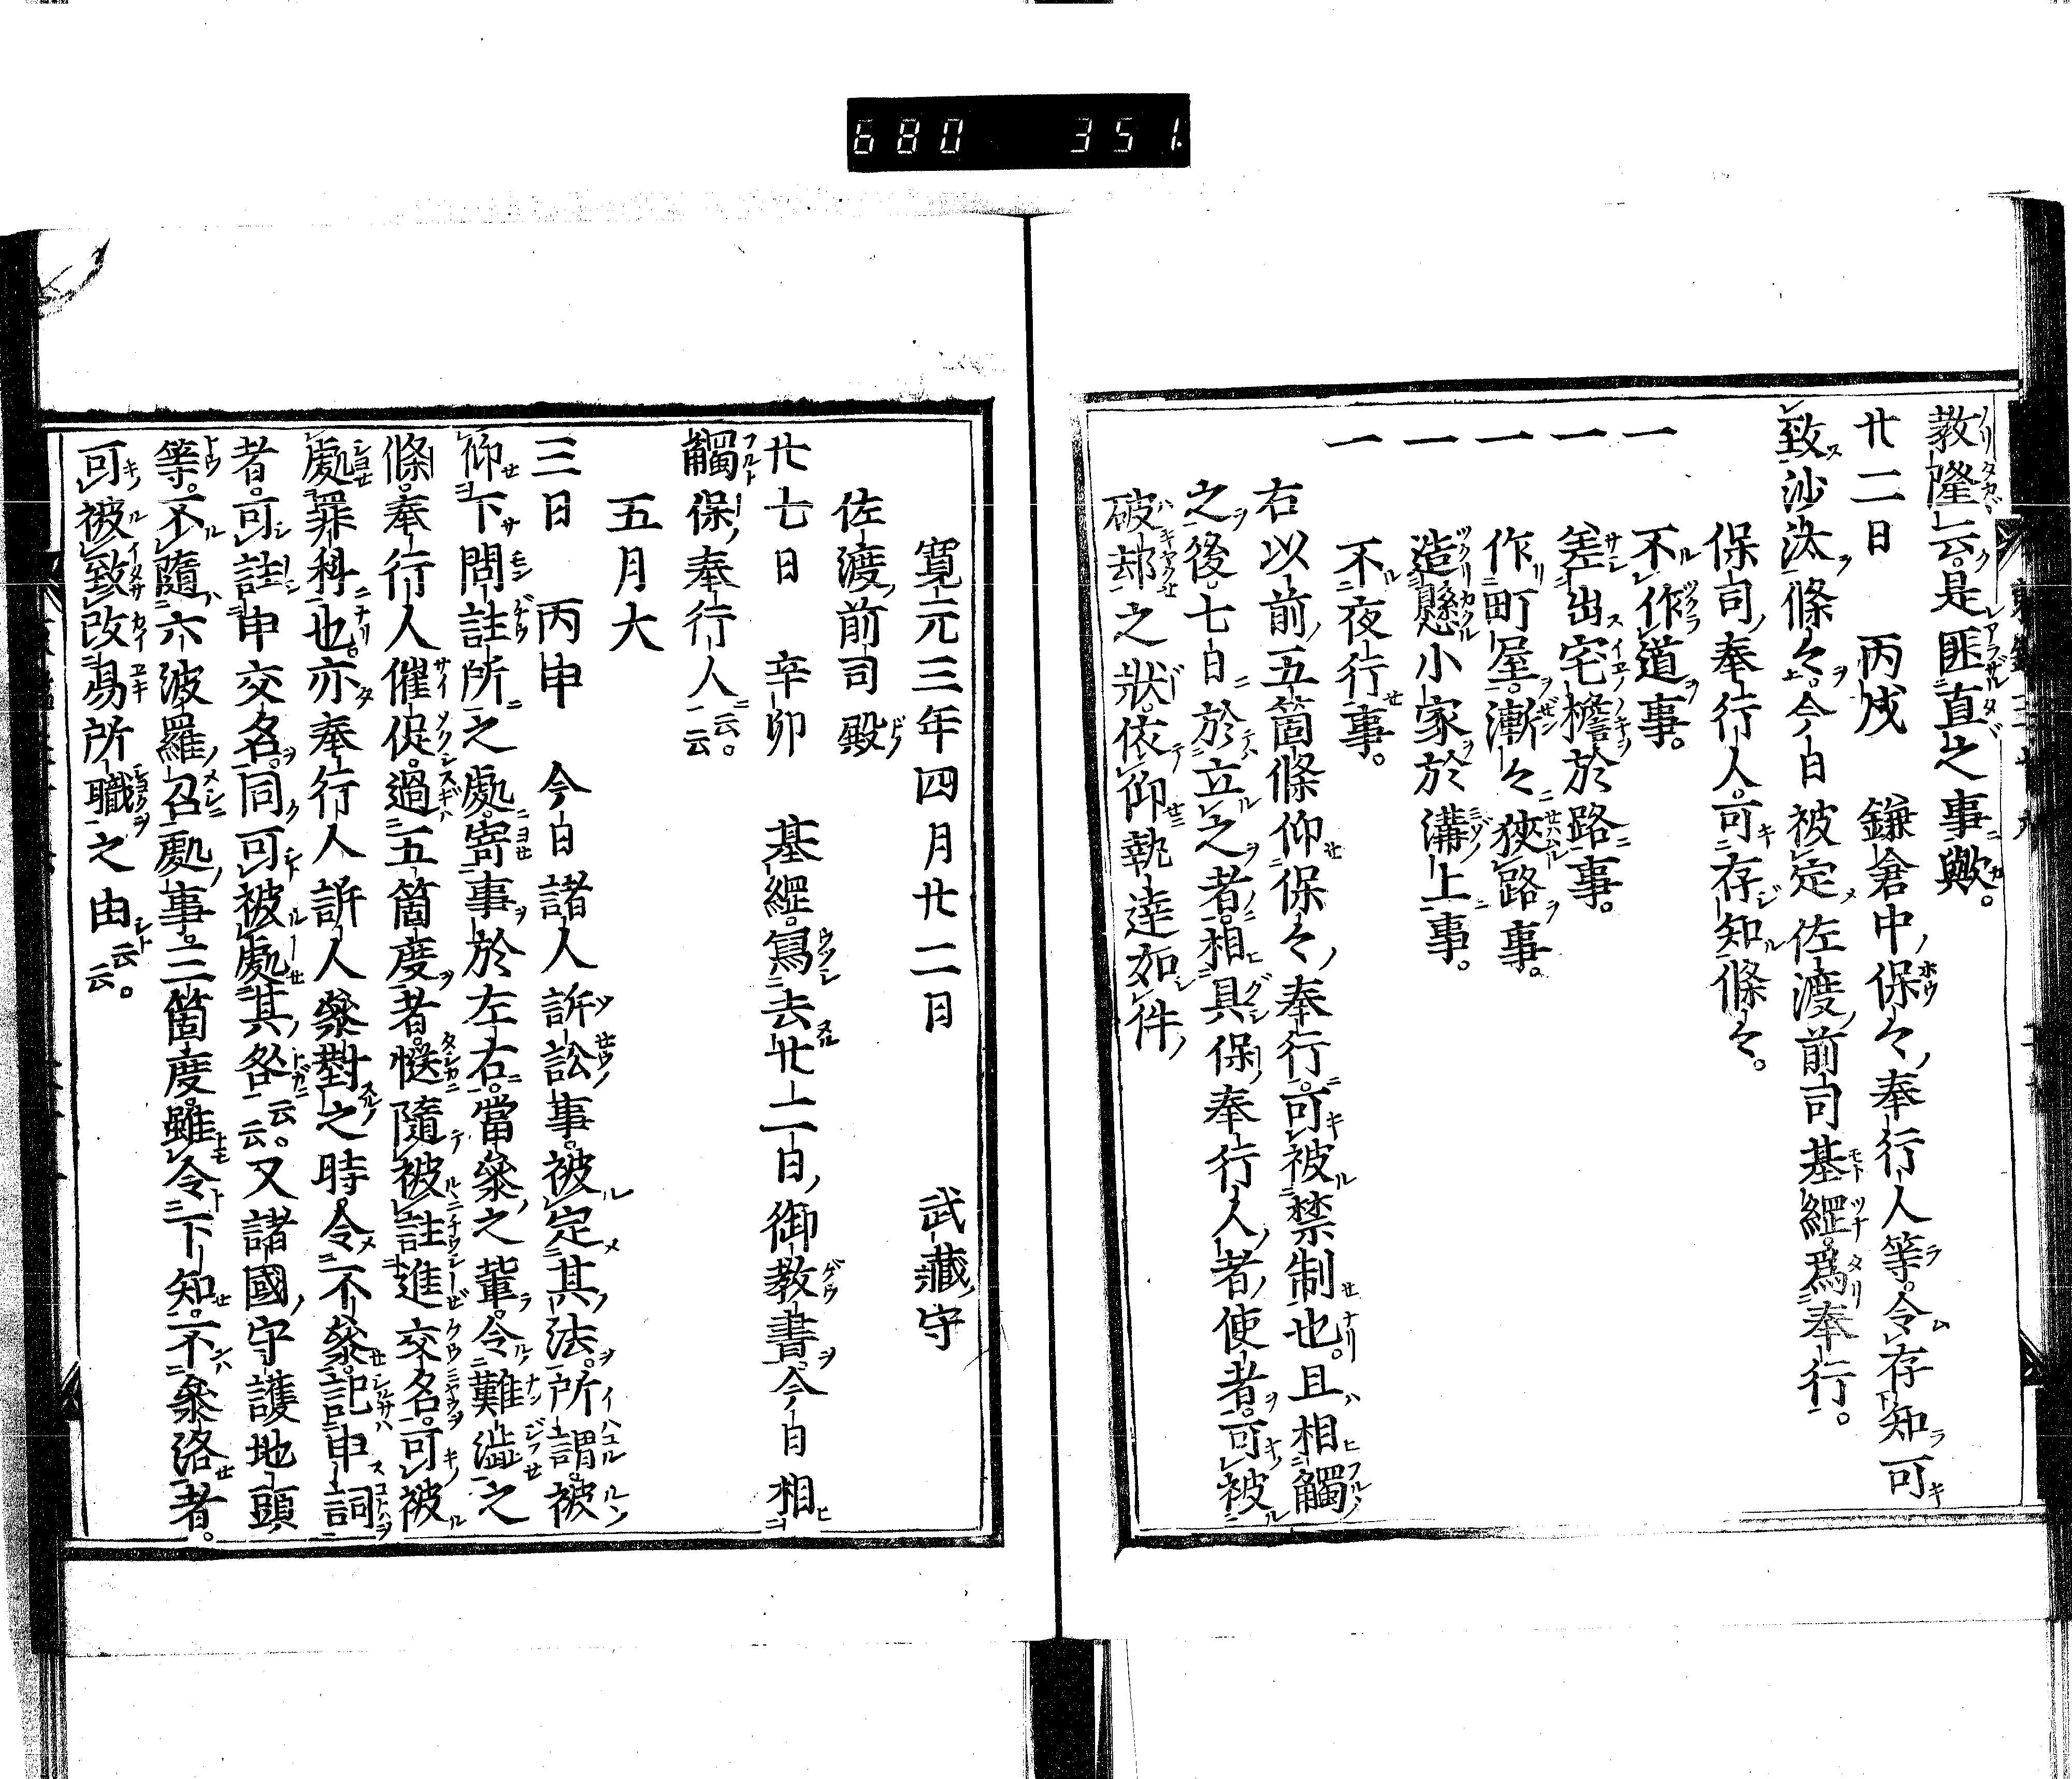 680 351.
教隆云是匪直之事歟。
廿二日　丙戌　鎌倉中保々奉行人等。令存知可
致沙汰條々。今日被定佐渡前司基綱。爲奉行。
保司奉行人。可存知條々。
一　不作道事。
一　差出宅檐於路事。
一　作町屋。漸々狹路事。
一　造懸小家於溝上事。
一　不夜行事。
右以前五箇條仰保々奉行。可被禁制也。且相觸
之後。七日於立之者。相具保奉行人者使者。可被
破却之狀。依仰執達如件
寛元三年四月廿二日　武藏守
佐渡前司殿
廿七日　辛卯　基綱。寫去廿二日御教書。今日相
觸保奉行人云云。
五月大
三日　丙申　今日諸人訴訟事。被定其法。所謂。被
仰下問註所之處。寄事於左右。當參之輩。令難澁之
條。奉行人催促。過五箇度者。慥隨被註進交名。可被
處罪科也。亦奉行人訴人參對之時。令不參。記申詞
者。可註申交名。同可被處其咎云云。又諸國守護地頭
等。不隨六波羅召處事。三箇度。雖令下知。不參洛者。
可被致改易所職之由云云。